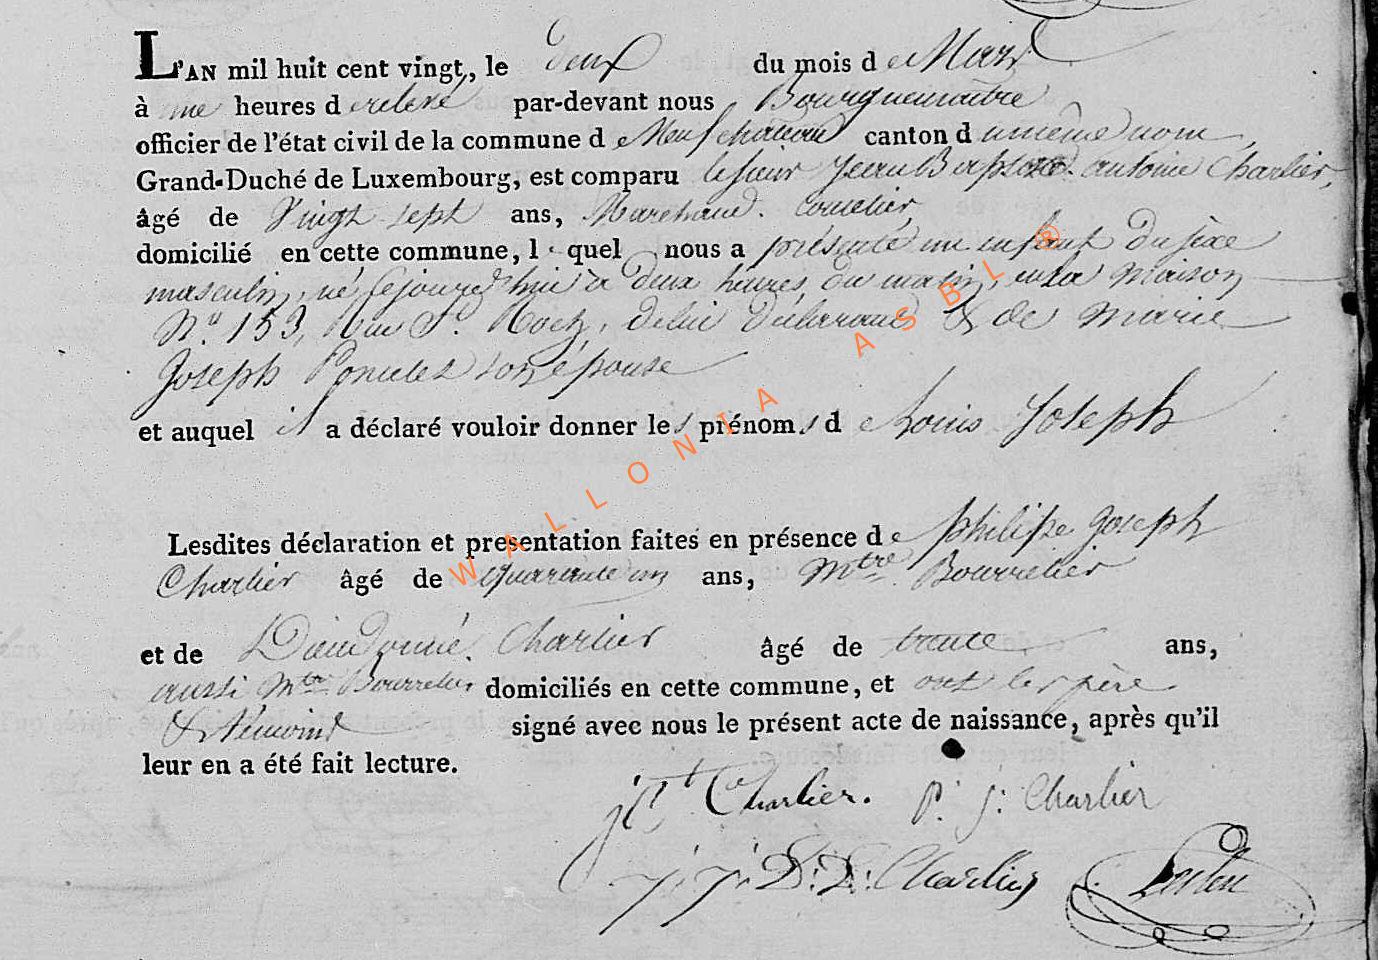 L'AN mil huit cent vingt, le deux du mois de Mars
à une heures de relevé par-devant nous Bourguemaître
officier de l'état civil de la commune de Neufchateau canton d du même nom,
Grand-Duché de Luxembourg, est comparu le sieur Jean Baptiste antoine Charlier,
âgé de Vingt sept ans, Marchand
domicilié en cette commune, lequel nous a présenté un enfant du sexe
masculin, né cejourd'hui à deux heures du matin, en la maison
N.º 153, Rue St. Roch, de lui déclarant & de Marie
Joseph son épouse
et auquel il a déclaré vouloir donner les prénoms de Louis Joseph
Lesdites déclaration et presentation faites en présence de philippe Joseph
Charlier âgé de quarante un ans, Mtre Bourrelier
et de Dieudonné Charlier âgé de trente ans,
aussi Mtre Bourrelier domiciliés en cette commune, et ont les père
& témoins signé avec nous le présent acte de naissance, après qu'il
leur en a été fait lecture.
Charlier. P. J. Charlier
D. D. Charlier
WALLONIA ASBL ®